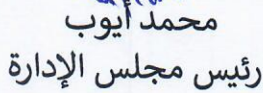 محمد أيوب
رئيس مجلس الإدارة